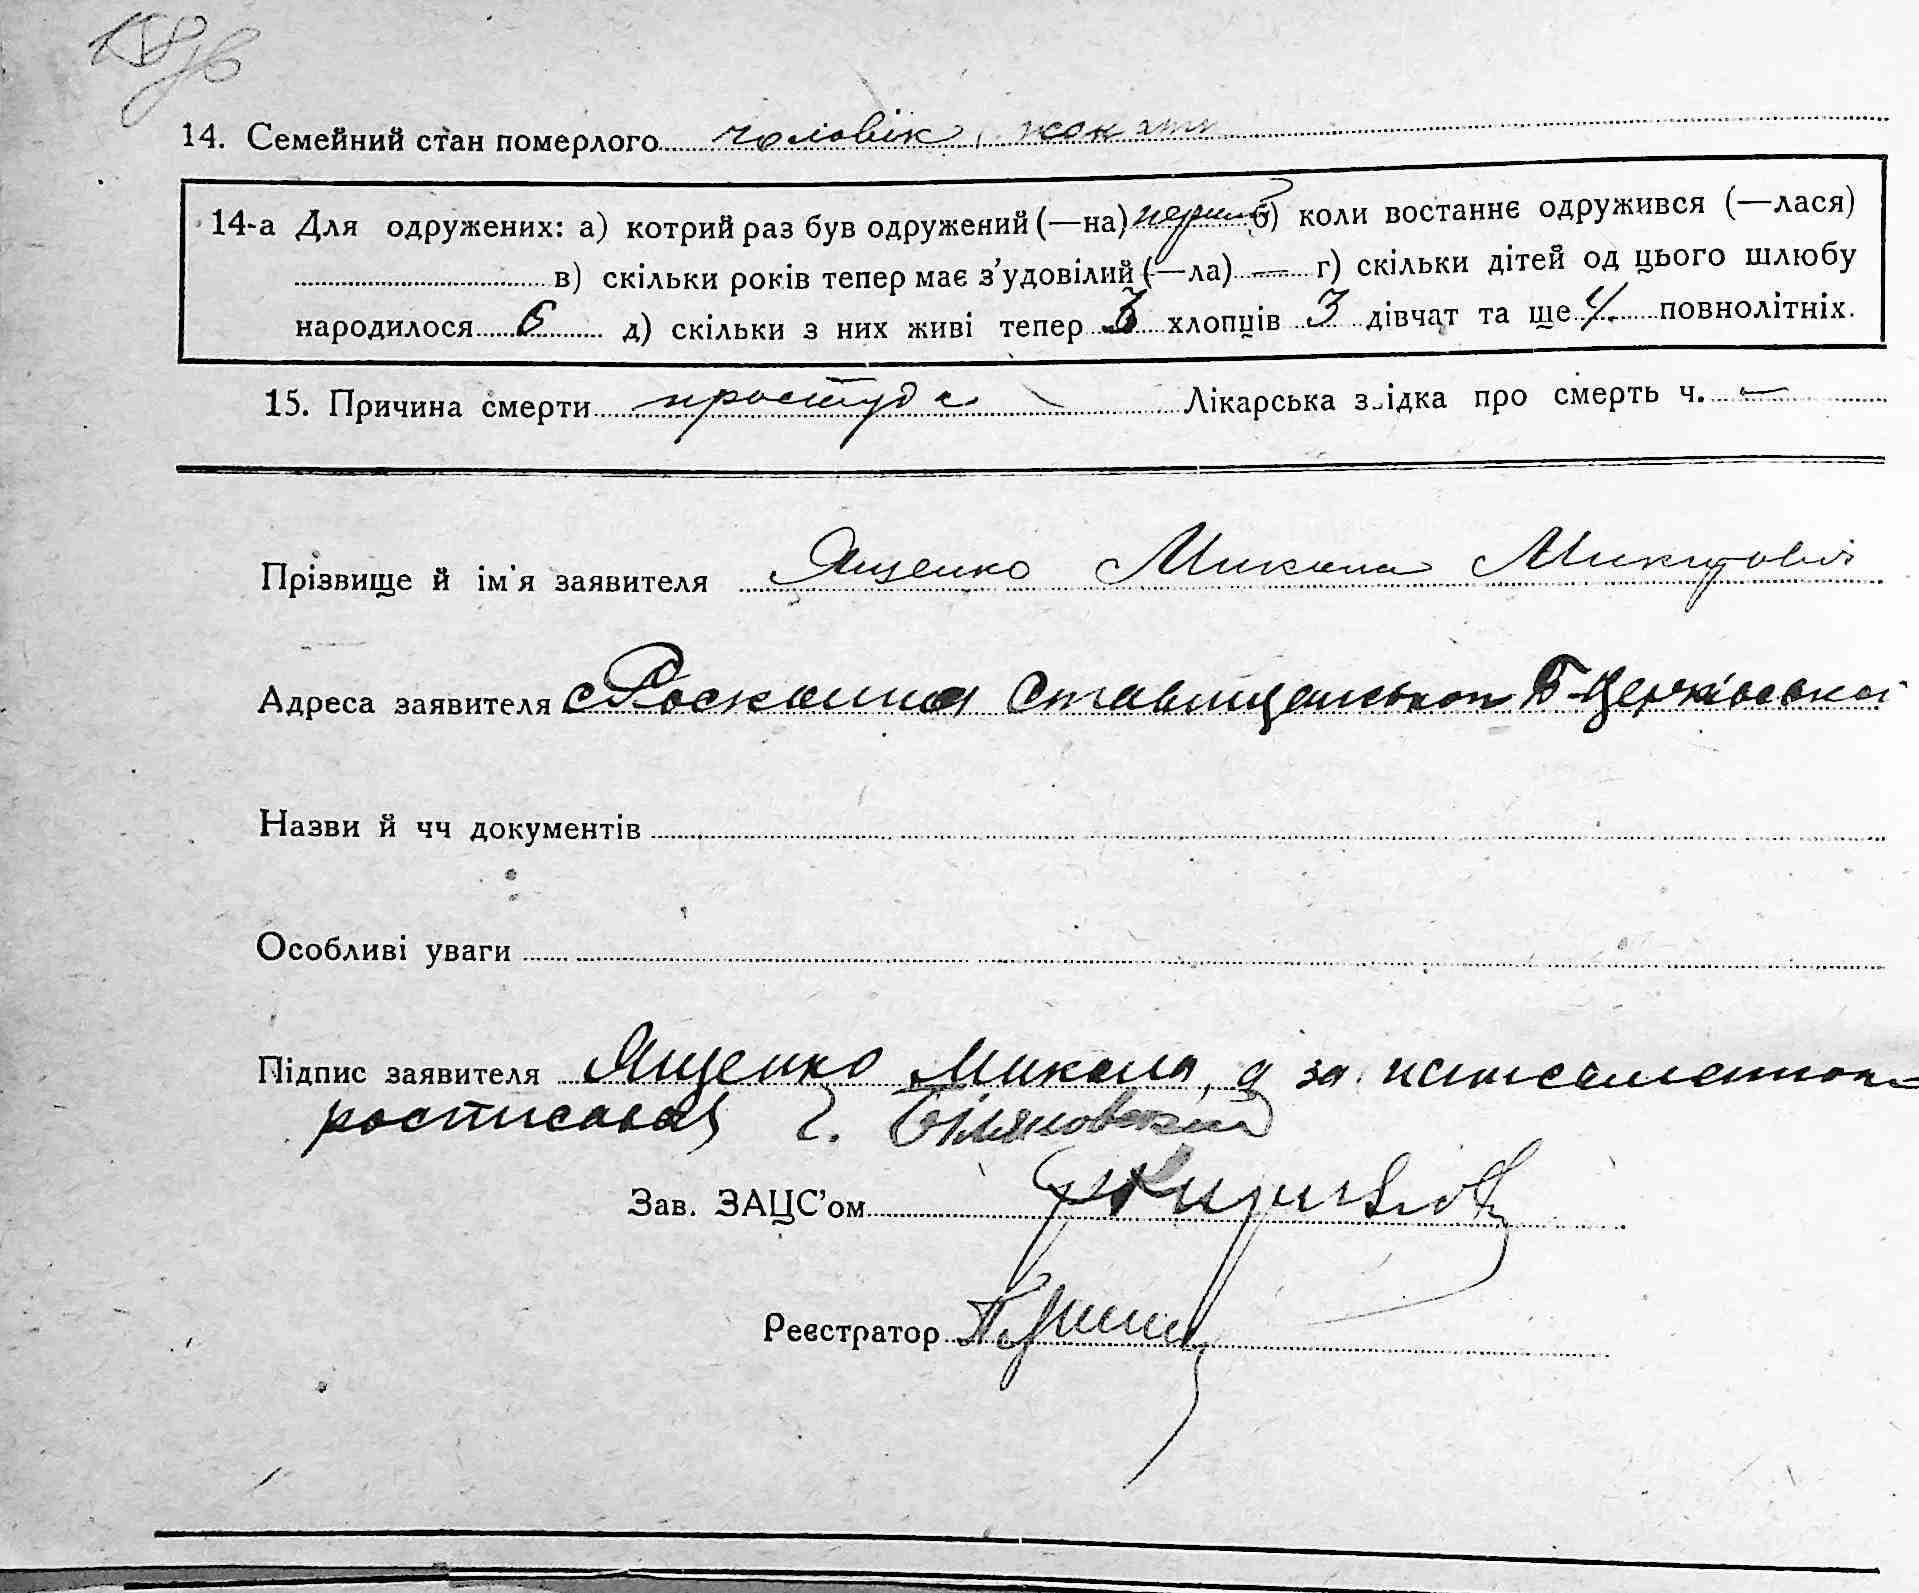 14. Семейний стан померлого чоловік, жонат
14-а Для одружених: а) котрий раз був одружений (—на) перший б) коли востаннє одружився (—лася)
в) скільки років тепер має з'удовілий (—ла) — г) скільки дітей од цього шлюбу
народилося 6 д) скільки з них живі тепер 3 хлопців 3 дівчат та ще 4 повнолітніх.
15. Причина смерти простуда Лікарська звідка про смерть ч. —
Прізвище й ім'я заявителя Ященко Микола Микитович
Адреса заявителя с Роскошна Ставищанського Б-Церківської
Назви й чч документів
Особливі уваги
Підпис заявителя Ященко Микола, а за неписьменного
росписався Г.
Зав. ЗАЦС'ом
Реєстратор